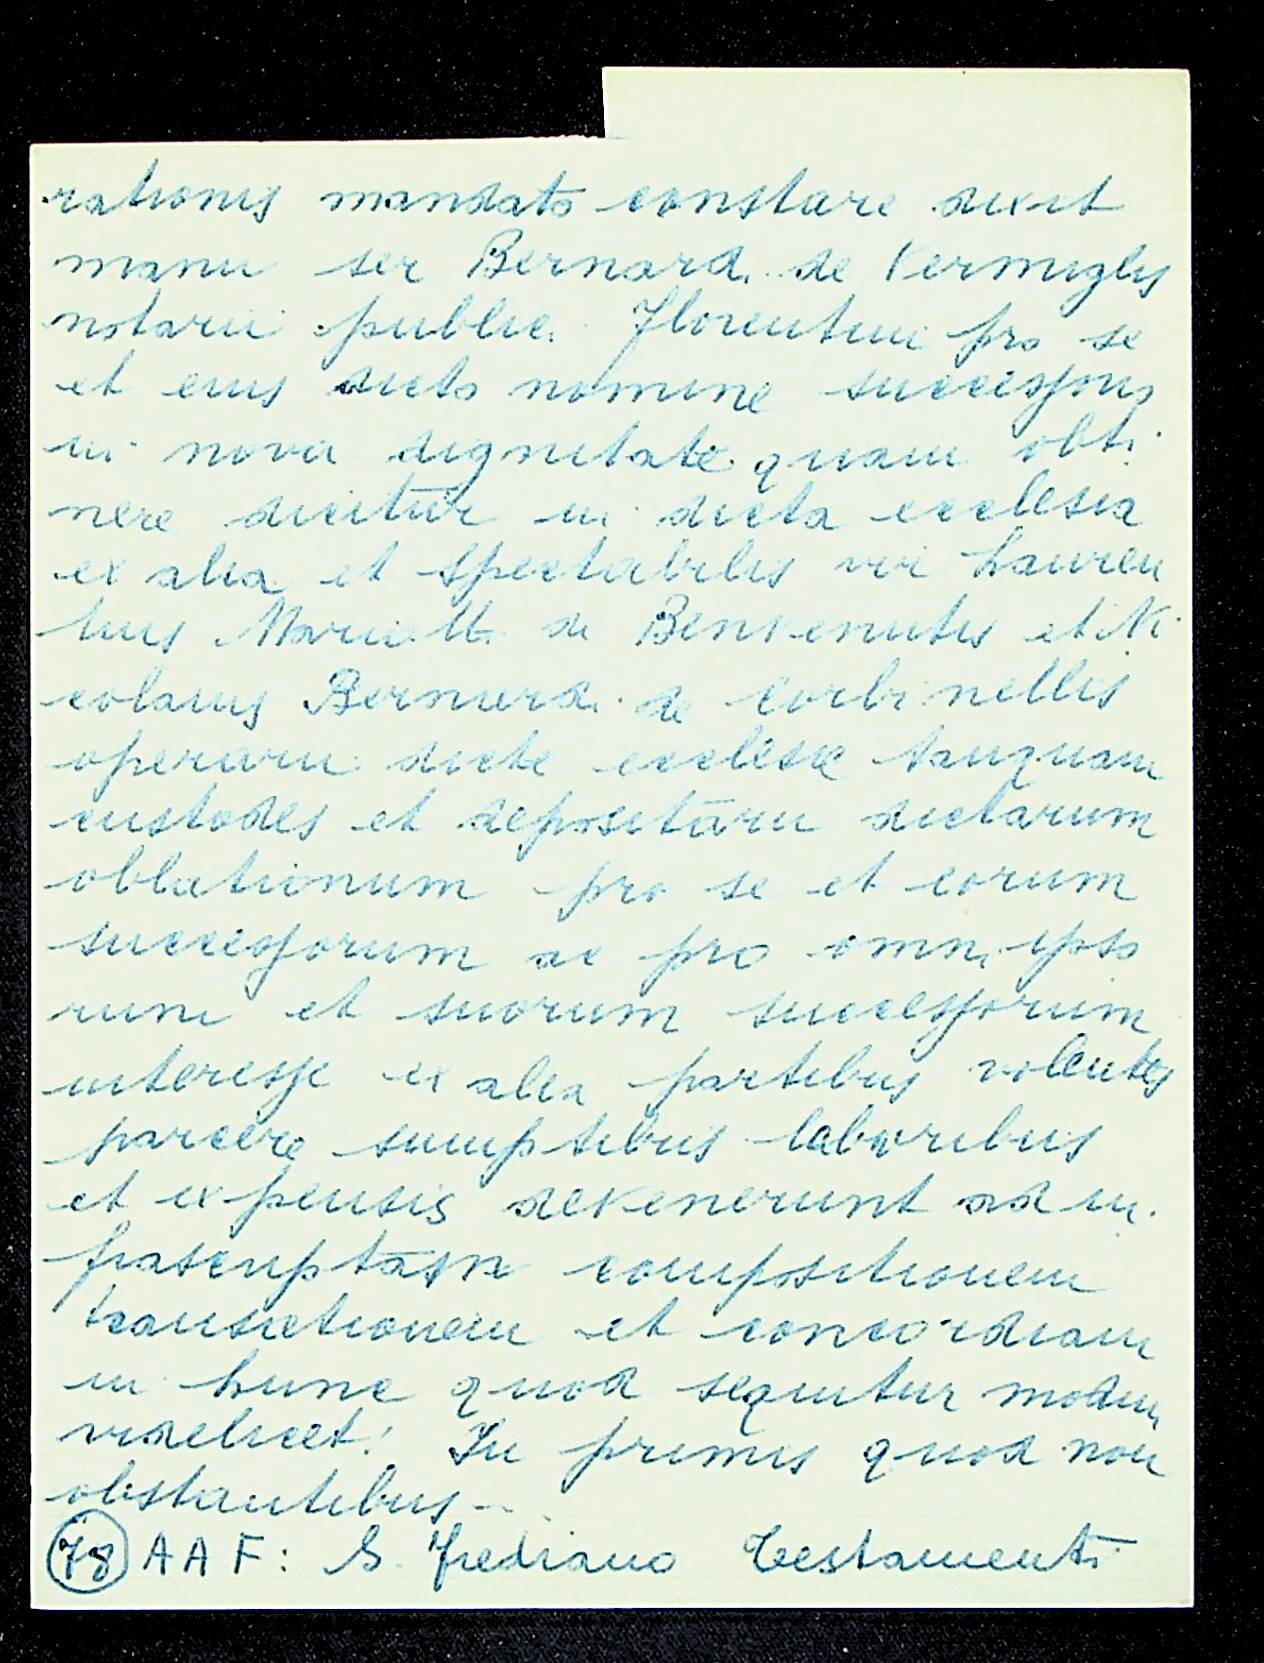 rationis mandato constare dixit
manu ser Bernard. de Vermiglis
notarii public. Florentini pro se
et eius dicto nomine successoris
in nova dignitate quam obti
nere dicitur in dicta ecclesia
ex alia et spectabiles viri Lauren
tius Mariott. de Benvenutis et Ni
colaus Bernard. de Corbinellis
operarii dicte ecclesie tanquam
custodes et depositarii dictarum
oblationum pro se et eorum
successorum ac pro omn. ipso
rum et suorum successorum
interesse ex alia partibus volentes
parcere sumptibus laboribus
et expensis devenerunt ad in
frascriptam compositionem
transactionem et concordiam
in hunc quod sequitur modum
videlicet: In primis quod non
obstantibus -
78 AAF: S. Frediano Testamenti